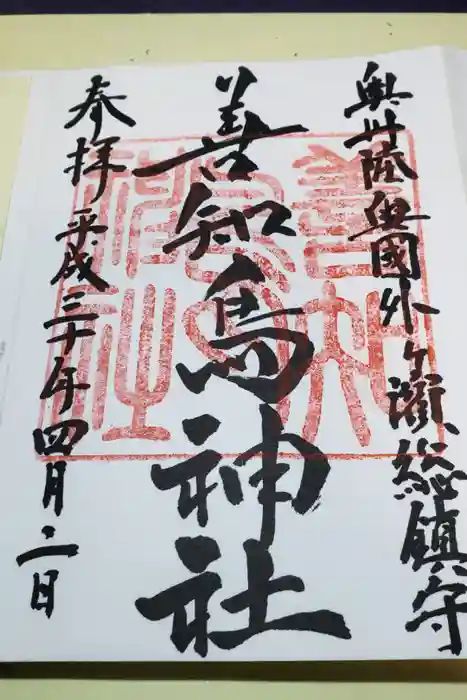 奥州陸奥國外ヶ濱総鎮守
善知鳥神社
奉拝 平成三十年四月二日
善知鳥神社